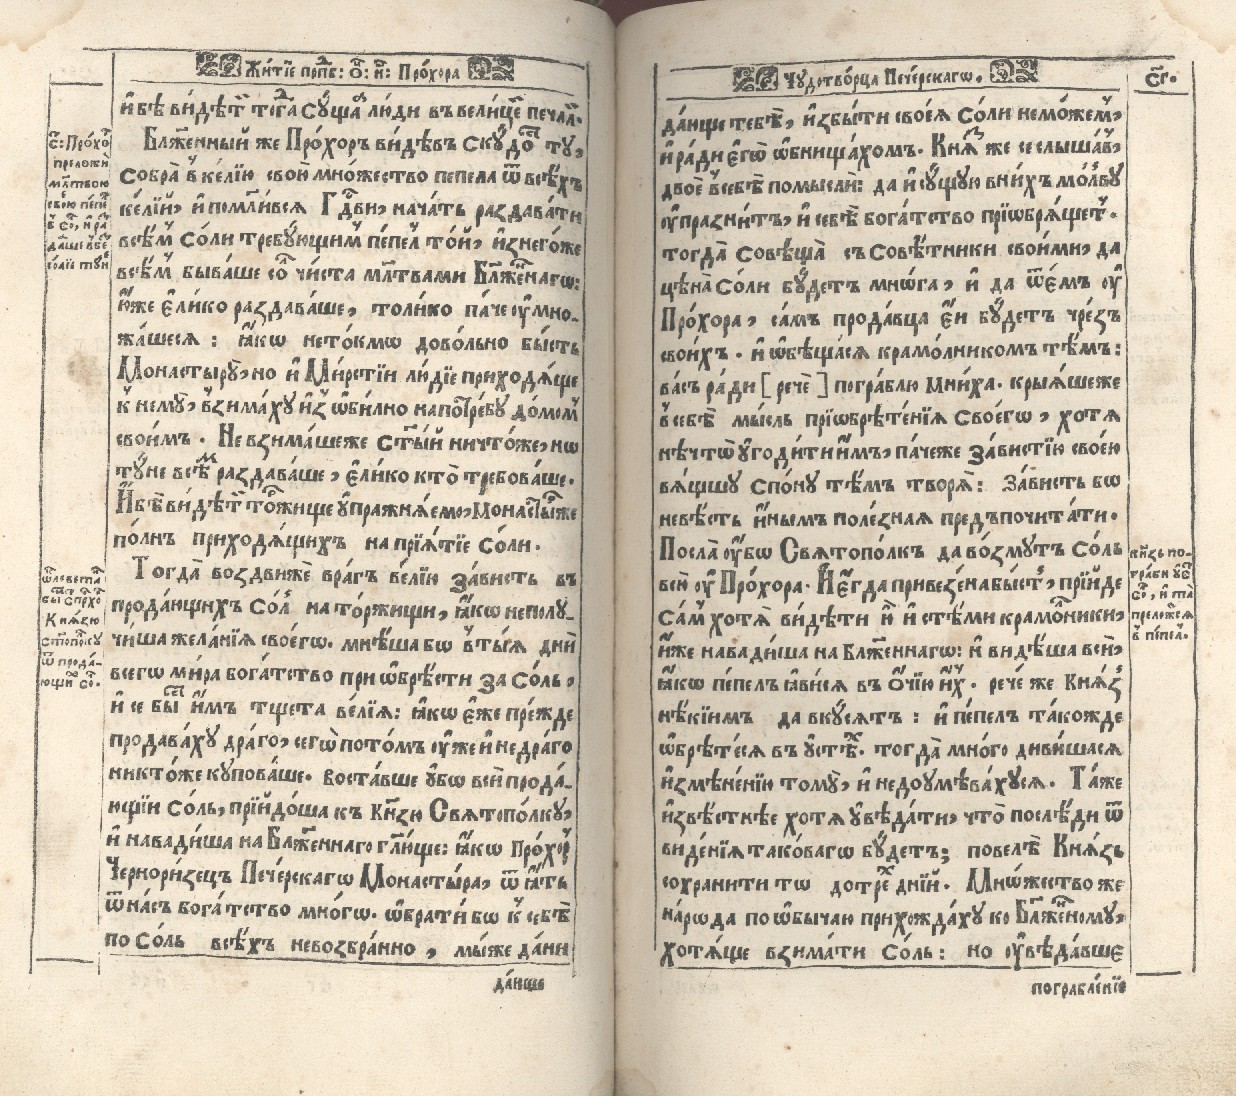 Житїе прпⷣб: ѻ҃: н҃: Прохора
и҆ бѣ видѣтⷭ тогⷣа сꙋщаѧ люди въ велицѣй печалⷧ.
С: Прохоⷬ преложи млтвою свою пепеⷧ
Блаⷤенный же Прохоръ видѣвъ скꙋдоⷭ тꙋ,
собра в келїю свою множество пепела ѿ всѣхъ
келїй, и҆ помⷧивсѧ Гдⷭви, начатъ раздавати
всѣмъ соли требꙋющимъ пепел той, и҆ з негоже
всѣмъ бываше соⷧ чиста млⷮвами Блаⷤеннагѡ:
юже є҆лико раздаваше, толико паче оу҆мно-
жашесѧ: ꙗ҆кѡ нетокмѡ довольно бысть
Монастырꙋ, но и҆ Мирстїи людїе приходѧще
к немꙋ, взимахꙋ и҆зѡбилно на потребꙋ домом
своимъ. Не взимашеже Стый ничтоже, нѡ
тꙋне всѣм раздаваше, є҆лико кто требоваше.
И҆ бѣ видѣтⷭ торжище оу҆пражнѧемо, Монастырь же
полнъ приходѧщихъ на прїѧтїе соли.
Тогда воздвиже врагъ велїю зависть въ
продающихъ соль на торжищи, ꙗ҆кѡ неполꙋ-
чиша желанїѧ своегѡ. мнѣша бѡ в тыѧ дни
всегѡ мира богатство приѡбрѣсти за соль,
и҆ се бы и҆мъ тщета велїѧ: ꙗ҆кѡ є҆же прежде
продавахꙋ драго, сегѡ потомъ оу҆же и҆ недраго
никтоже кꙋповаше. воставше оу҆бѡ вси прода-
ющїи соль, прїйдоша къ кнѧзю Свѧтополкꙋ,
и҆ навадиша на Блаⷤеннаго глюще: ꙗ҆кѡ Прохоръ
Черноризецъ Печерскагѡ Монастырѧ, ѿѧтъ
ѿ насъ богатство многѡ. ѡбрати бѡ к себѣ
по соль всѣхъ невозбранно, мыже дани
даюше
Чꙋдотворца Печерскагѡ.
сг҃.
даюше тебѣ, и҆збыти своеѧ соли неможем,
и҆ ради є҆гѡ ѡбнищахом. Кнѧз же се слышав,
двое в себѣ помысли: да и҆ сꙋщꙋю в нихъ молвꙋ
оу҆празнитъ, и҆ себѣ богатство прїѡбрѧщет.
тогда совѣща съ совѣтники своими, да
цѣна соли бꙋдетъ мнѡга, и҆ да ѿемъ оу҆
Прохора, самъ продавца є҆и бꙋдетъ чрезъ
своихъ. и҆ ѡбѣщасѧ крамолникомъ тѣмъ:
васъ ради [рече] пограблю мниха. крыѧшеже
в себѣ мысль прїѡбрѣтенїѧ своегѡ, хотѧ
нѣчтѡ оу҆годити и҆мъ, пачеже завистїю своею
вѧщшꙋ спонꙋ тѣмъ творѧ: Зависть бѡ
невѣсть и҆нымъ полезнаѧ предъпочитати.
Посла оу҆бѡ Свѧтополкъ да возмꙋтъ соль
всю оу҆ Прохора. И҆ є҆гда привезена бысть, прїйде
сам хотѧ видѣти ю҆ и҆ с тѣми крамолники,
и҆же навадиша на Блаⷤеннагѡ: и҆ видѣша вси,
ꙗ҆кѡ пепелъ ꙗ҆висѧ въ ѻ҆чїю и҆х. рече же Кнѧз
нѣкїимъ да вкꙋсѧтъ: и҆ пепел такожде
ѡбрѣтесѧ въ оу҆стѣх. тогда много дивишасѧ
и҆змѣненїю томꙋ, и҆ недоꙋмѣвахꙋсѧ. Таже
и҆звѣстнѣе хотѧ оу҆вѣдати, что послѣди ѿ
видѣнїѧ таковагѡ бꙋдетъ; повелѣ Кнѧзь
сохранити тѡ до трех днїй. Мнѡжество же
народа по ѡбычаю прихождахꙋ ко Блаⷤенномꙋ,
хотѧще взимати соль: но оу҆вѣдавше
Кнзь по-
преложсѧ
в пепел.
пограбленїе